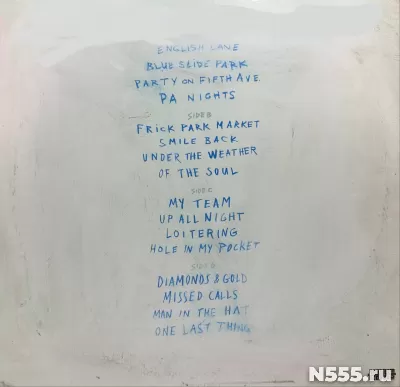 ENGLISH LANE
BLUE SLIDE PARK
PARTY ON FIFTH AVE.
PA NIGHTS
SIDE B
FRICK PARK MARKET
SMILE BACK
UNDER THE WEATHER
OF THE SOUL
SIDE C
MY TEAM
UP ALL NIGHT
LOITERING
HOLE IN MY POCKET
SIDE D
DIAMONDS & GOLD
MISSED CALLS
MAN IN THE HAT
ONE LAST THING
N555.ru